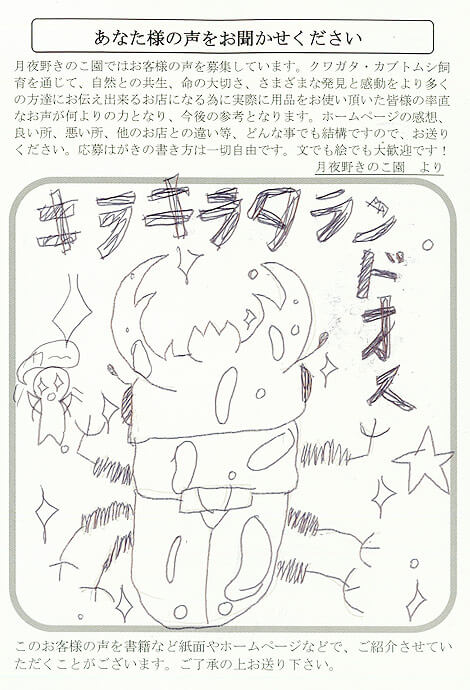 あなた様の声をお聞かせください
月夜野きのこ園ではお客様の声を募集しています。クワガタ・カブトムシ飼
育を通じて、自然との共生、命の大切さ、さまざまな発見と感動をより多く
の方達にお伝え出来るお店になる為に実際に用品をお使い頂いた皆様の率直
なお声が何よりの力となり、今後の参考となります。ホームページの感想、
良い所、悪い所、他のお店との違い等、どんな事でも結構ですので、お送り
ください。応募はがきの書き方は一切自由です。文でも絵でも大歓迎です！
月夜野きのこ園　より
キラキラグランドオス
このお客様の声を書籍など紙面やホームページなどで、ご紹介させてい
ただくことがございます。ご了承の上お送り下さい。